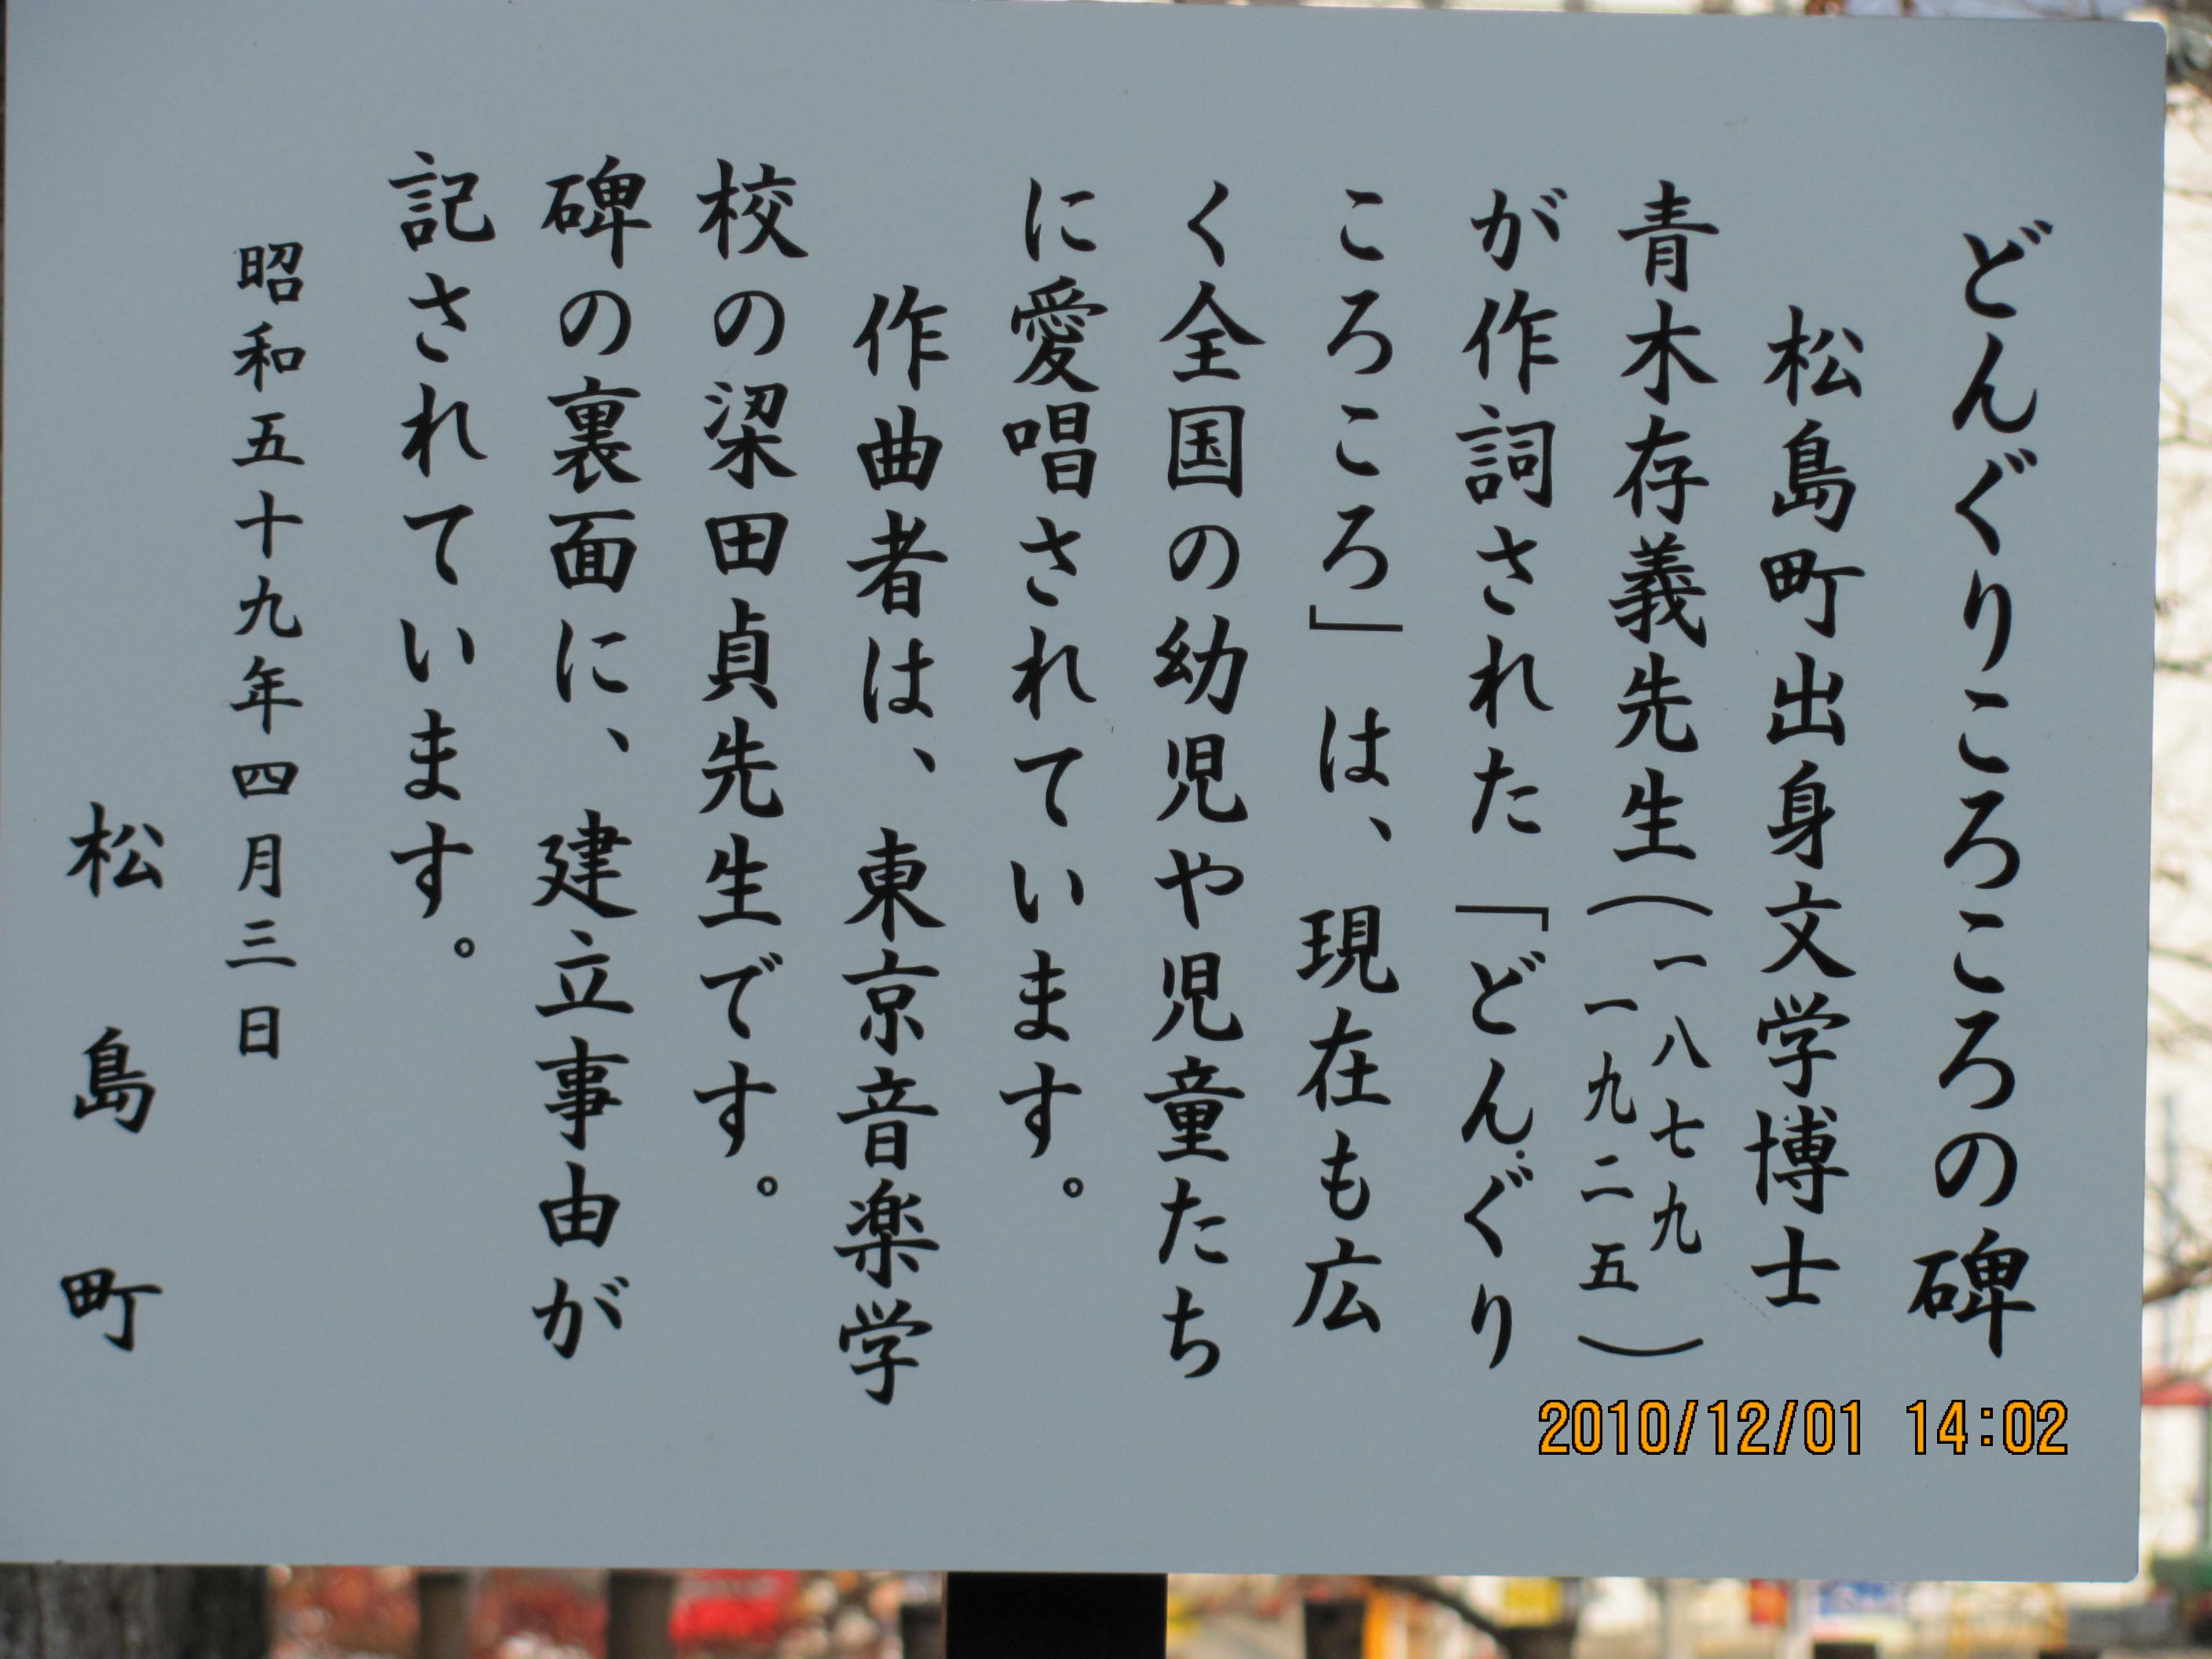 どんぐりころころの碑
松島町出身文学博士
青木存義先生(一八七九
一九二五)
が作詞された「どんぐり
ころころ」は、現在も広
く全国の幼児や児童たち
に愛唱されています。
作曲者は、東京音楽学
校の梁田貞先生です。
碑の裏面に、建立事由が
記されています。
昭和五十九年四月三日
松島町
2010/12/01 14:02